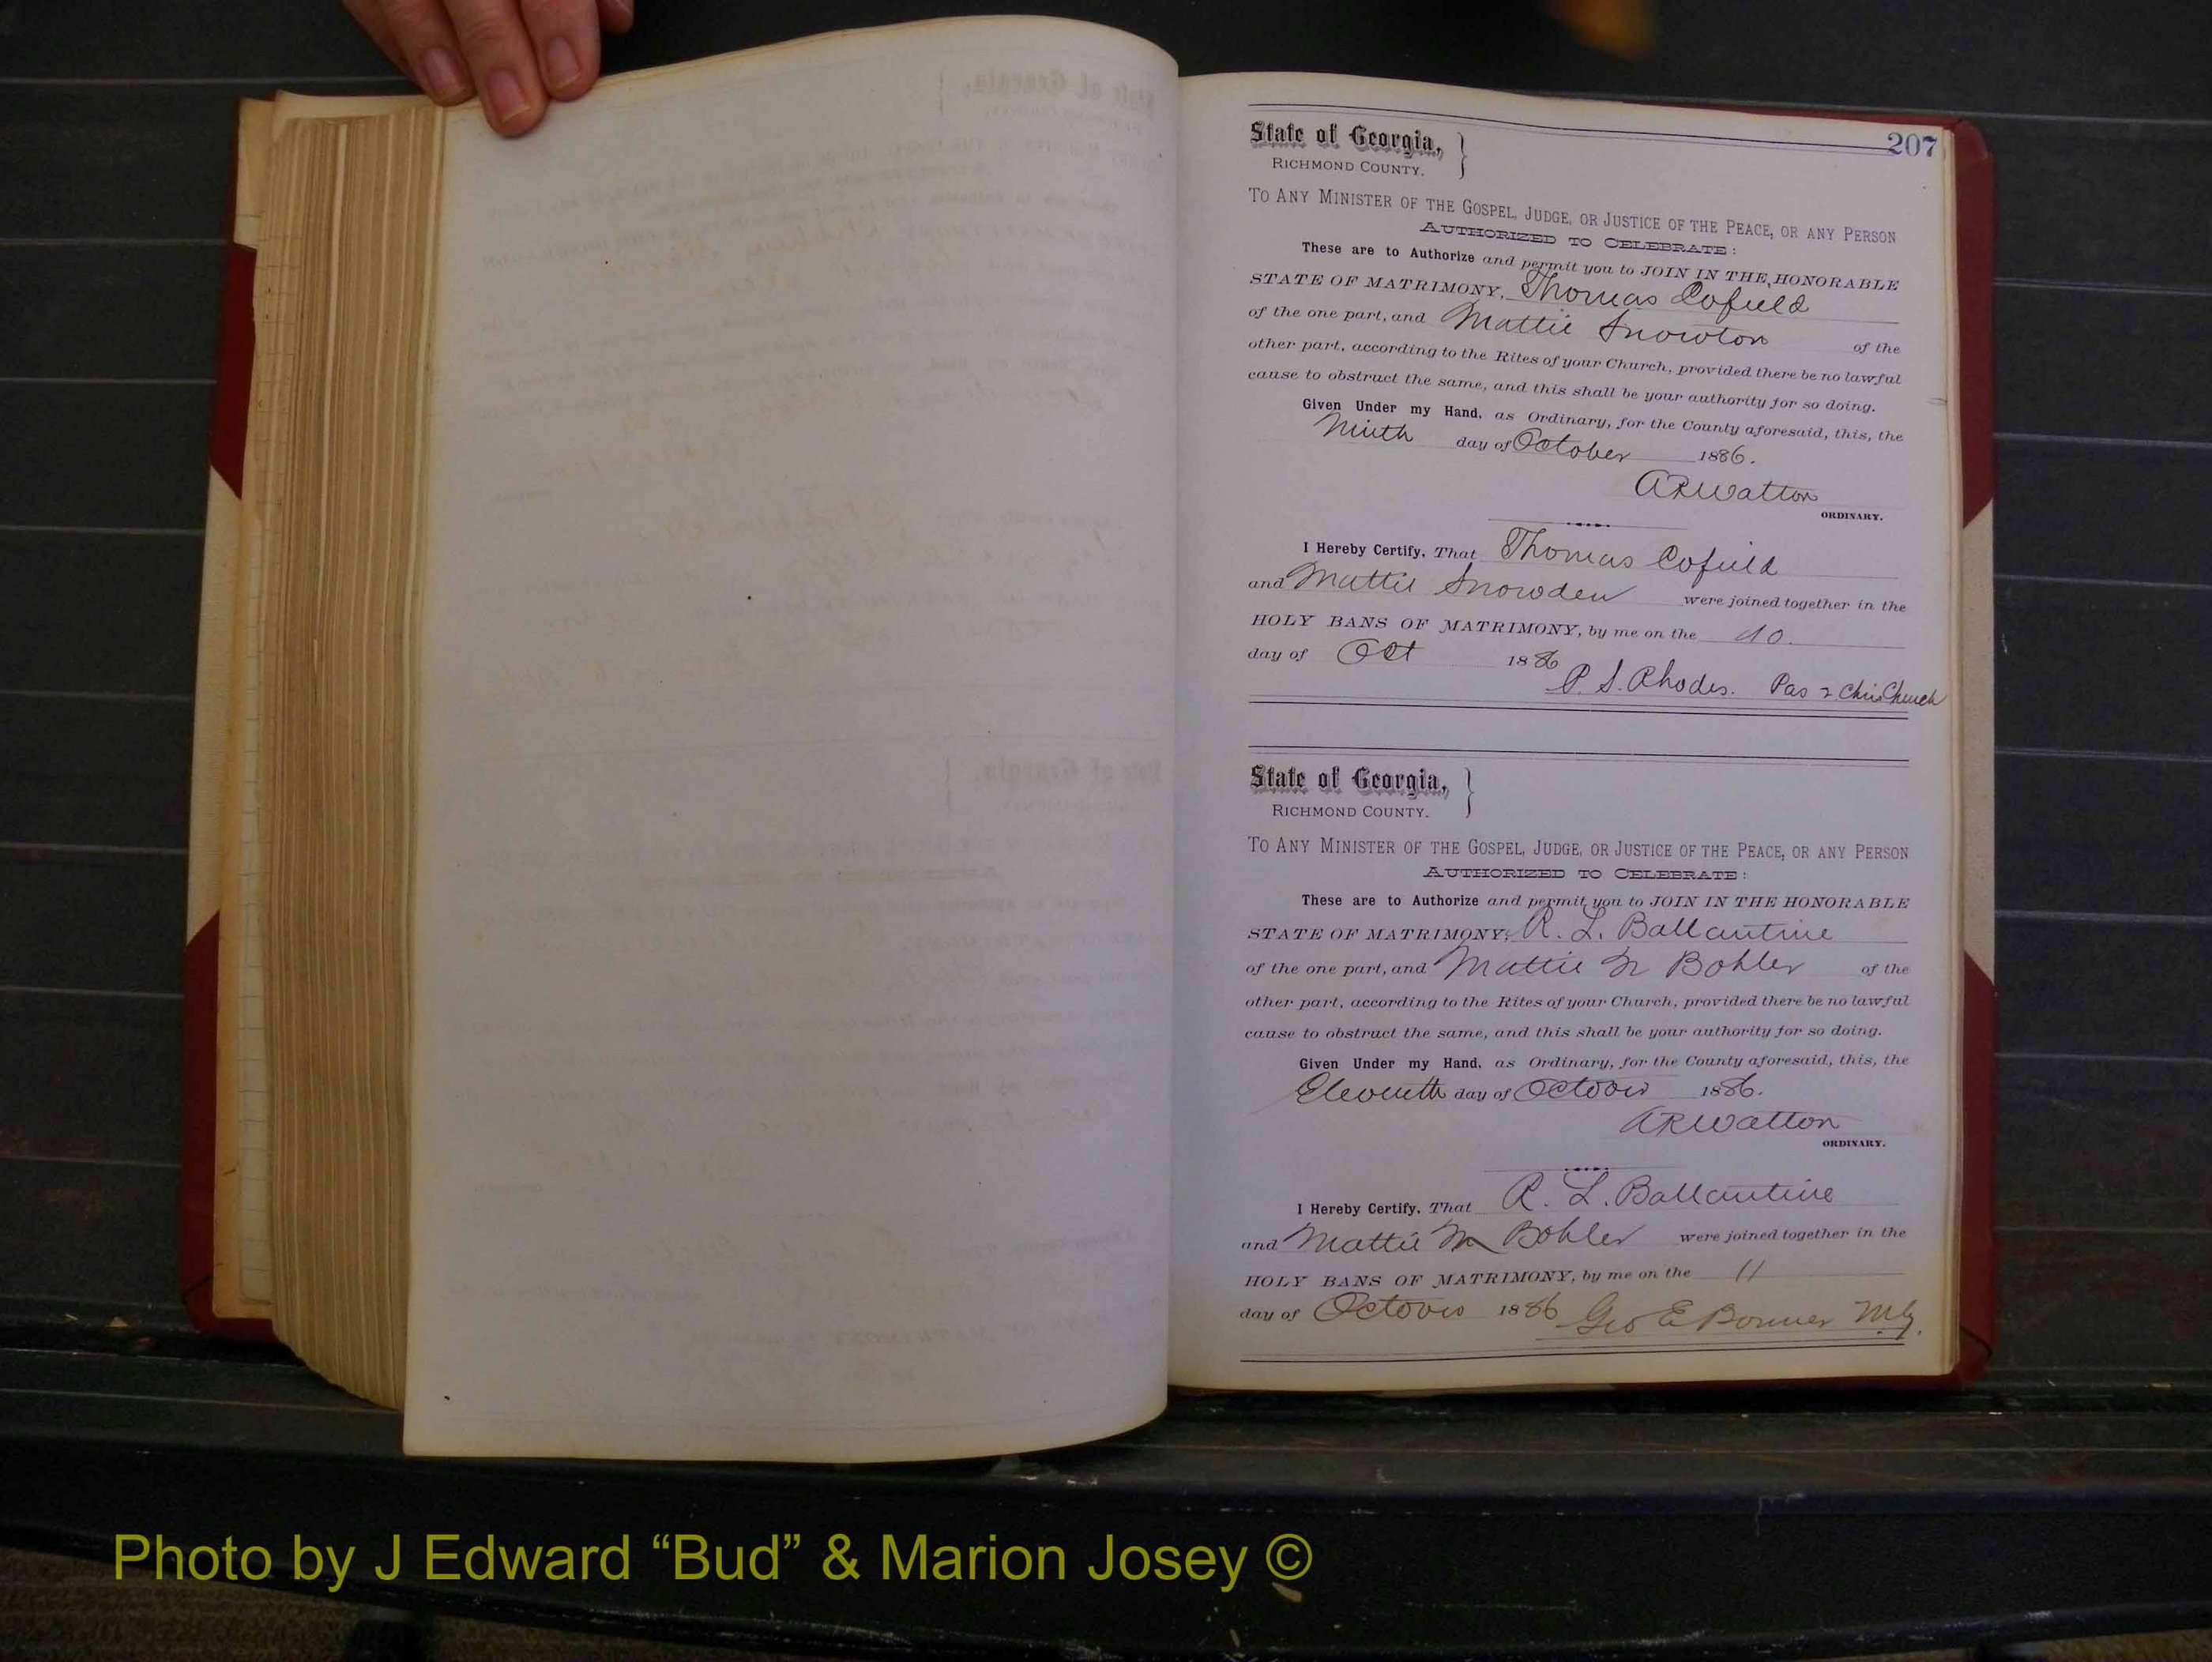 207
State of Georgia, }
RICHMOND COUNTY.
TO ANY MINISTER OF THE GOSPEL, JUDGE, OR JUSTICE OF THE PEACE, OR ANY PERSON
AUTHORIZED TO CELEBRATE:
These are to Authorize and permit you to JOIN IN THE HONORABLE
STATE OF MATRIMONY, Thomas Cofield
of the one part, and Mattie Snowton of the
other part, according to the Rites of your Church, provided there be no lawful
cause to obstruct the same, and this shall be your authority for so doing.
Given Under my Hand, as Ordinary, for the County aforesaid, this, the
Ninth day of October 1886.
ARWalton
ORDINARY.
I Hereby Certify, That Thomas Cofield
and Mattie Snowden were joined together in the
HOLY BANS OF MATRIMONY, by me on the 10.
day of Oct 1886
P. S. Rhodes. Pas Chris Church
State of Georgia, }
RICHMOND COUNTY.
TO ANY MINISTER OF THE GOSPEL, JUDGE, OR JUSTICE OF THE PEACE, OR ANY PERSON
AUTHORIZED TO CELEBRATE:
These are to Authorize and permit you to JOIN IN THE HONORABLE
STATE OF MATRIMONY, R. L. Ballantine
of the one part, and Mattie M Bohler of the
other part, according to the Rites of your Church, provided there be no lawful
cause to obstruct the same, and this shall be your authority for so doing.
Given Under my Hand, as Ordinary, for the County aforesaid, this, the
Eleventh day of October 1886.
ARWalton
ORDINARY.
I Hereby Certify, That R. L. Ballantine
and Mattie M Bohler were joined together in the
HOLY BANS OF MATRIMONY, by me on the 11
day of October 1886 Geo E Bonner M.G.
Photo by J Edward “Bud” & Marion Josey ©